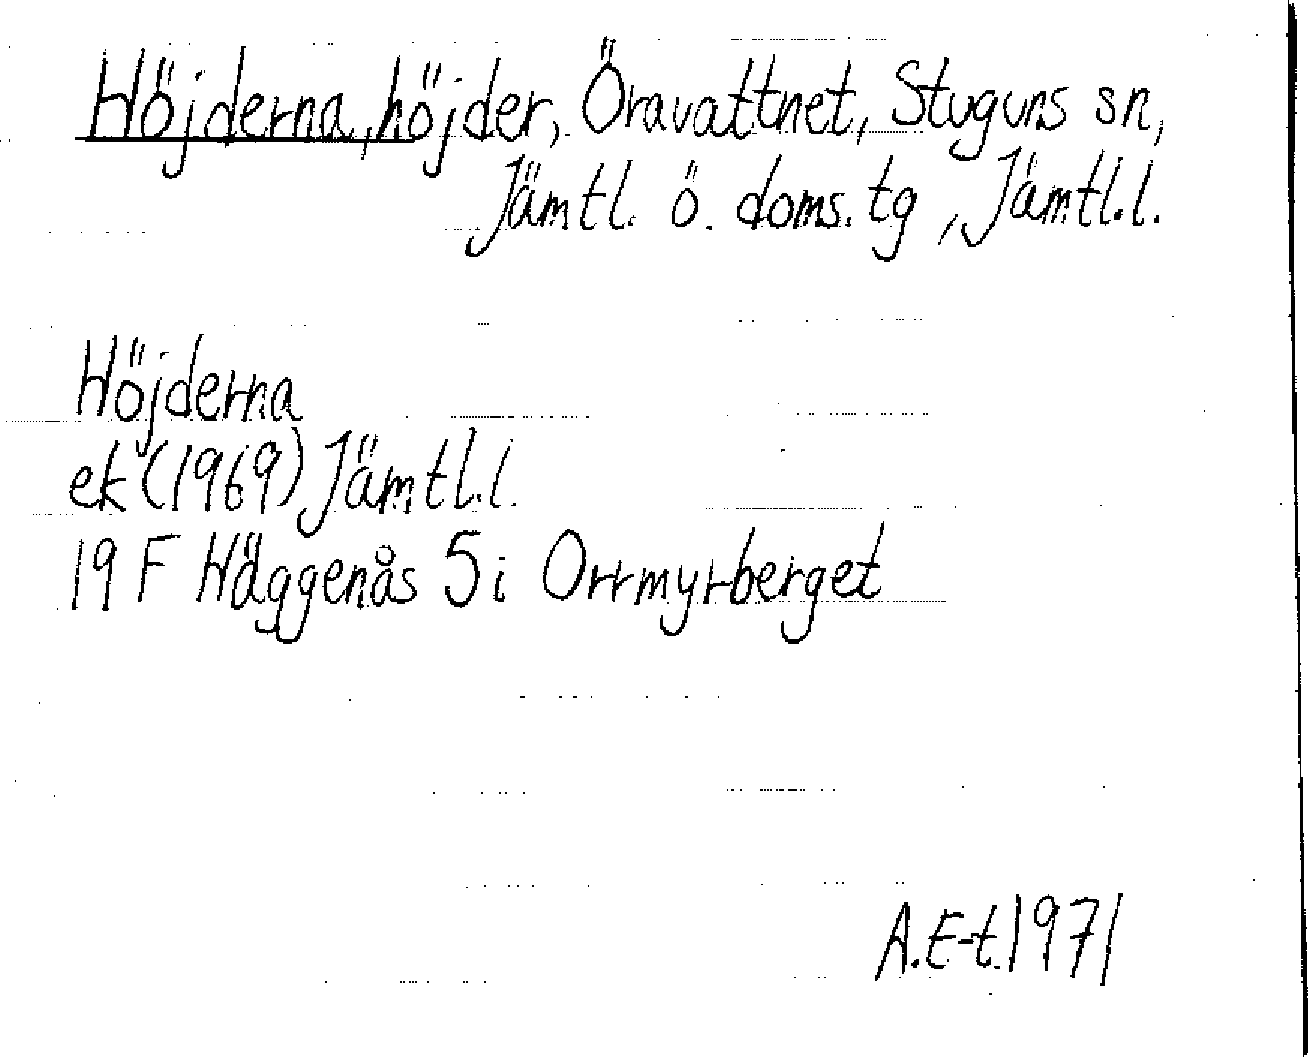 Höjderna, höjder, Öravattnet, Stuguns sn,
Jämtl. ö. doms. tg, Jämtl.l.
Höjderna
ek (1969) Jämtl.l.
19 F Häggenås 5 i Orrmyrberget
A.E-t.1971